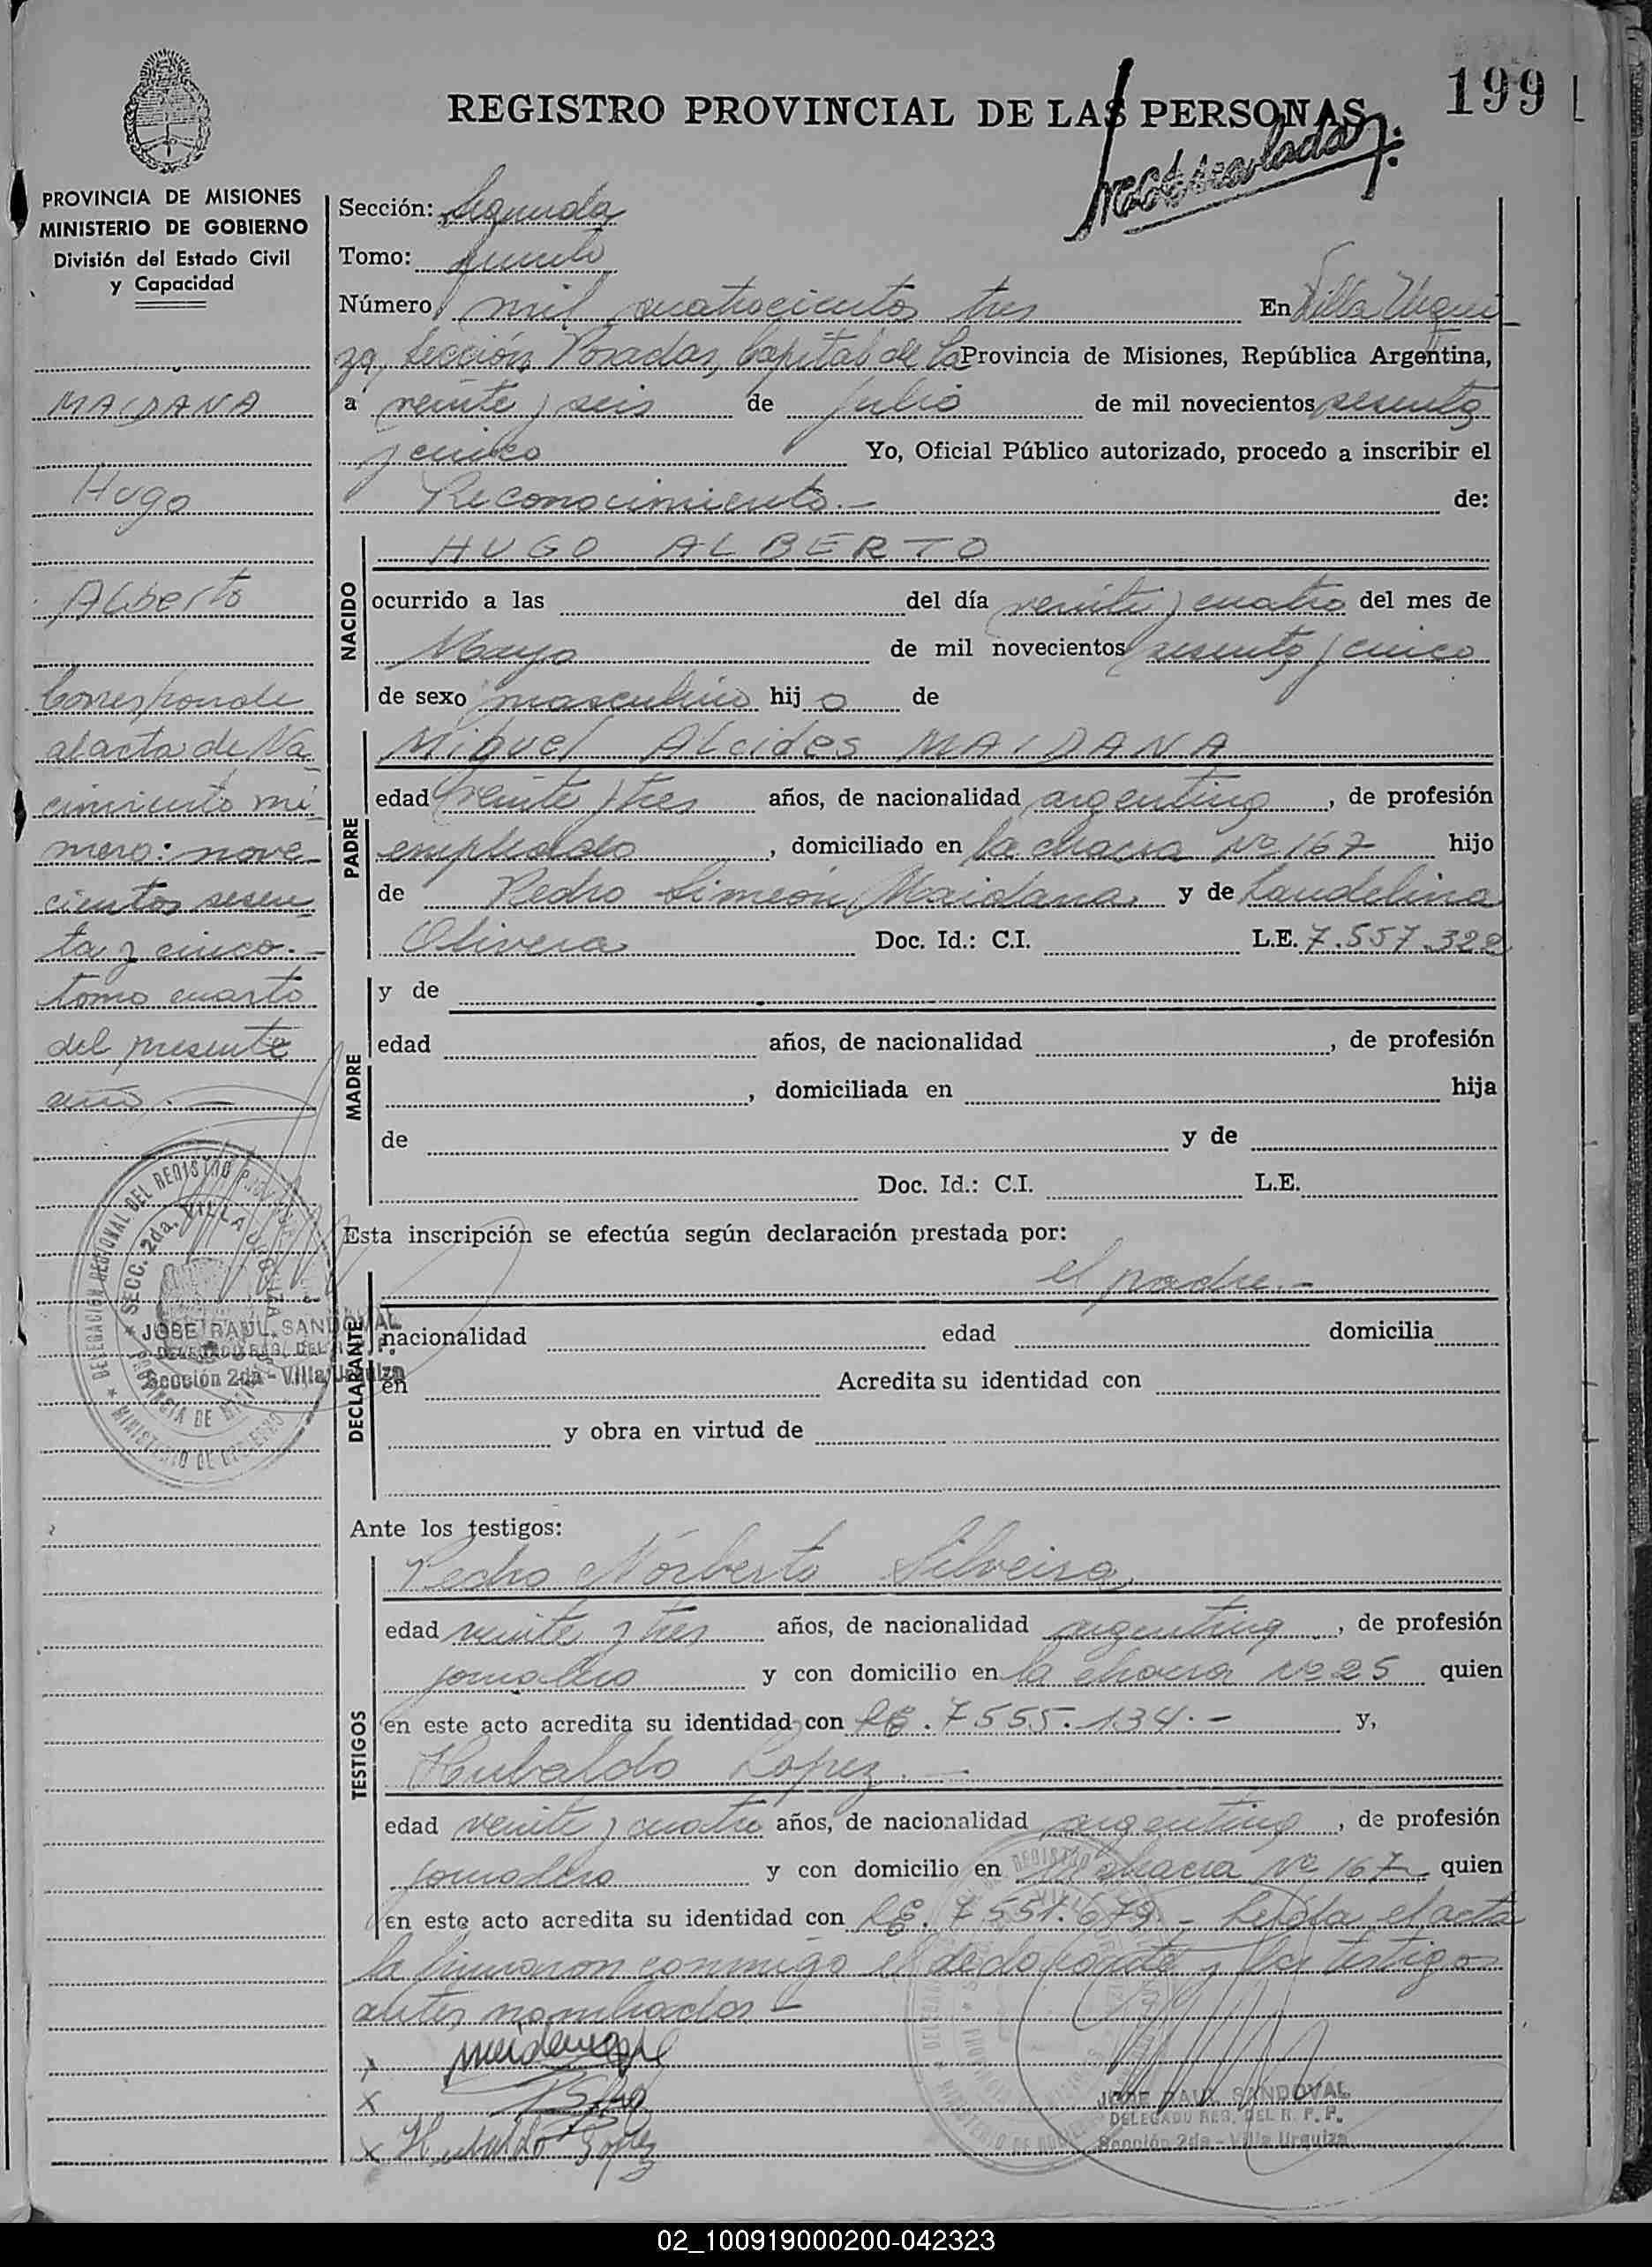 199
REGISTRO PROVINCIAL DE LAS PERSONAS
PROVINCIA DE MISIONES
MINISTERIO DE GOBIERNO
División del Estado Civil
y Capacidad
MAIDANA
Hugo
Alberto
Corresponde
al acta de Na
cimiento nú
mero: nove
cientos sesen
ta y cinco.-
tomo cuarto
del presente
año.-
JOSE RAUL SANDOVAL
Sección 2da - Villa Urquiza
Sección: Segunda
Tomo:
Número mil cuatrocientos tres En Villa Urqui
za, Sección Posadas, Capital de la Provincia de Misiones, República Argentina,
a veinte y seis de julio de mil novecientos sesenta
y cinco Yo, Oficial Público autorizado, procedo a inscribir el
Reconocimiento.- de:
NACIDO
HUGO ALBERTO
ocurrido a las del día veinte y cuatro del mes de
Mayo de mil novecientos sesenta y cinco
de sexo masculino hij o de
PADRE
Miguel Alcides MAIDANA
edad veinte y tres años, de nacionalidad argentina, de profesión
empleado, domiciliado en la chacra Nº 167 hijo
de Pedro Simeón Maidana y de Laudelina
Olivera Doc. Id.: C.I. L.E. 7.557.322
MADRE
y de
edad años, de nacionalidad , de profesión
, domiciliada en hija
de y de
Doc. Id.: C.I. L.E.
Esta inscripción se efectúa según declaración prestada por:
el padre.-
DECLARANTE
nacionalidad edad domicilia
en Acredita su identidad con
y obra en virtud de
Ante los testigos:
TESTIGOS
Pedro Norberto Silveira
edad veinte y tres años, de nacionalidad argentina, de profesión
jornalero y con domicilio en la chacra Nº 25 quien
en este acto acredita su identidad con LE. 7555.134.- y,
Hubaldo Lopez.-
edad veinte y cuatro años, de nacionalidad argentina, de profesión
jornalero y con domicilio en la chacra Nº 167 quien
en este acto acredita su identidad con LE. 7.551.679.- Leída el acta
la firmaron conmigo el y los testigos
antes nombrados-
x
x
x Hubaldo Lopez
JOSE RAUL SANDOVAL
DELEGADO REG. DEL R. P. P.
Sección 2da - Villa Urquiza
02_100919000200-042323